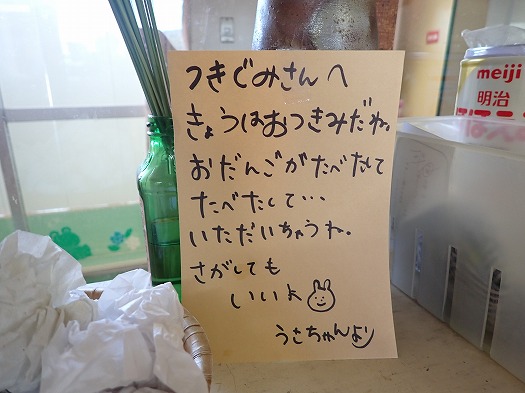 つきぐみさんへ
きょうはおつきみだね。
おだんごがたべたくて
たべたくて・・・
いただいちゃうね。
さがしても
いいよ
うさちゃんより
meiji
明治